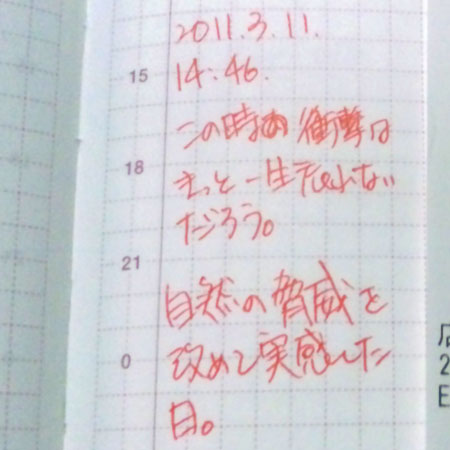 2011.3.11.
15
14:46.
この時の衝撃は
18
きっと一生忘れない
だろう。
21
自然の脅威を
0
改めて実感した
日。
2
E